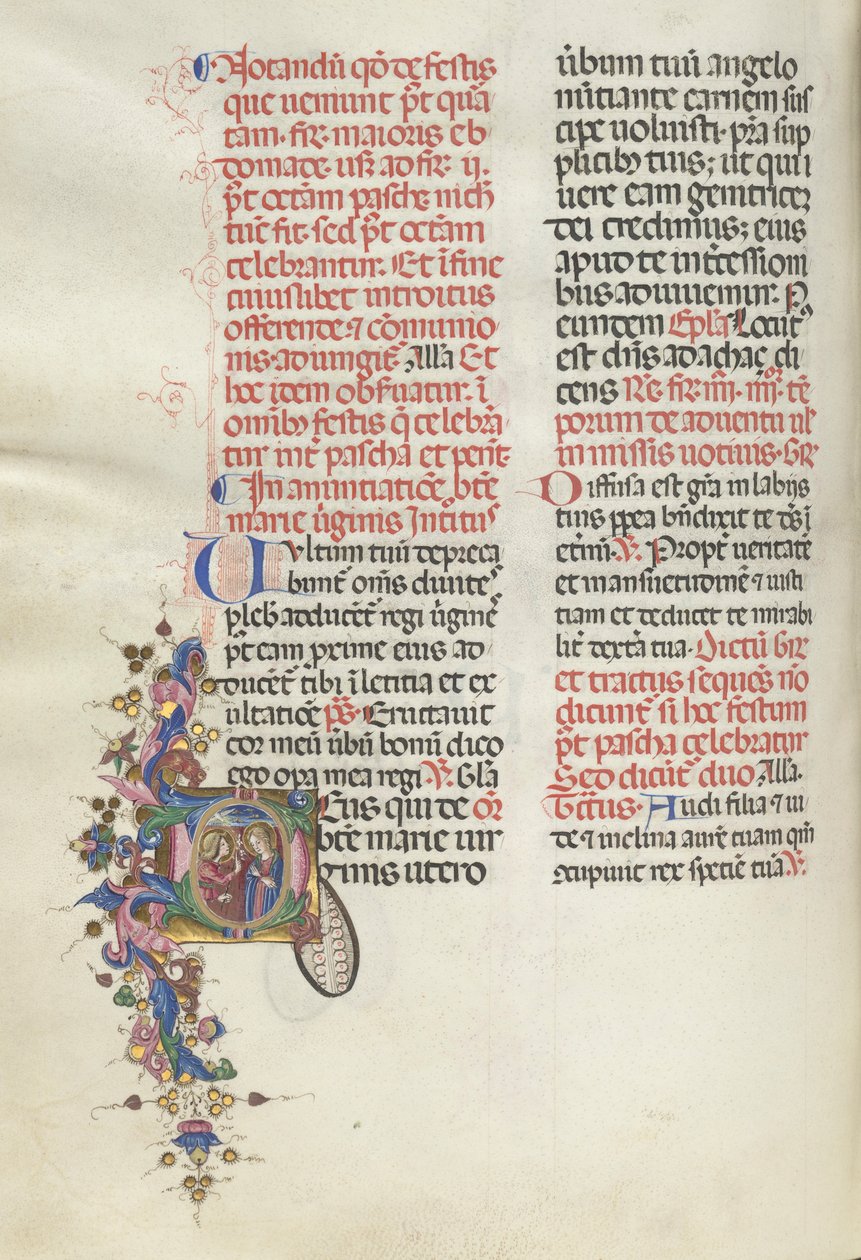 Notandū qd̄ de festis
que ueniunt p̄t quar
tam. fir. maioris eb
domade. usꝫ ad fir. ij.
p̄t octām pasche. nich̄
tūc fit. sed p̄t octām
celebrantur. Et ī fine
cuiuslibet introitus
offerende. ⁊ cōmunio
nis. adiungit᷑. Alla Et
hoc idem obẜuatur. ī
omībꝫ festis q̄ celebrā
tur int᷑ pascha et pent᷑.
In anūntiatiōe btē
marie ūginis Introitus
Vultum tuū depreca
bunt᷑ om̄s diuites
pleb̄ adducēt᷑ regi ūginē
p̄t eam proxime eius ad
ducēt᷑ tibi ī letitia et ex
ultatiōe p̄s̄. Eructauit
cor meū ūbū bonū dico
ego opa mea regi. V̄. Gl̄a
Deus qui de or̄
btē marie uir
ginis utero
ūbum tuū angelo
nūtiante carnem sus
cipe uoluisti. pr̄a sup
plicibꝫ tuis; ut qui
uere eam genitricē
dei credimus; eius
apud te int᷑cessioni
bus adiuuemur. P
eundem Epl̄a Locut᷒
est dn̄s ad achaç di
cens Rē. fir. iiij. iiijor. tē
porum de aduentu ul̄
in missis uotiuis. GR̄
Diffusa est grā in labijs
tuis ppea bn̄dixit te ds̄ ī
etnū. V̄. Propt᷑ ueritatē
et mansuetudinē ⁊ iusti
tiam et deducet te mirabi
lit᷑ dextā tua. Dictū Gr̄
et tractus sequēs nō
dicunt᷑ si hoc festum
p̄t pascha celebratur
Sed dicūt᷑ duo Alla.
Tc̄tus. Audi filia ⁊ ui
de ⁊ inclina aurē tuam qm̄
ɔcupiuit rex speciē tuā. V̄.